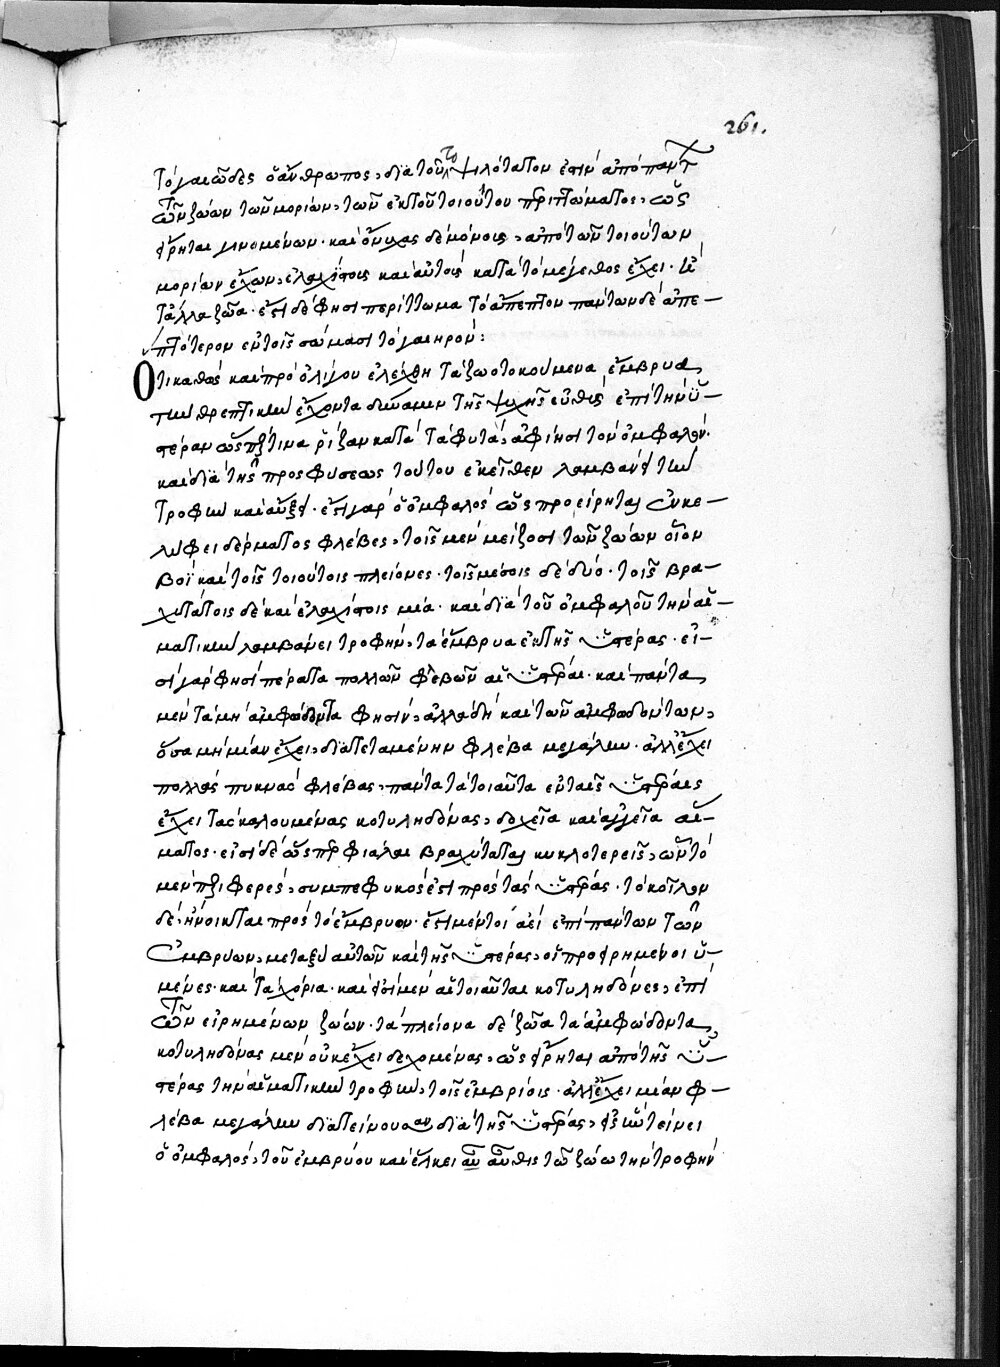 261.
τὸ γαιῶδες ὁ ἄνθρωπος, διὰ τοῦτο ψιλότατον ἐστὶν ἀπὸ πάντ
ων ζώων τῶν μορίων, τῶν ἐκ τοῦ τοιούτου περιττώματος, ὡς
εἴρηται γινομένων· καὶ ὄνυχας δὲ μόνους, ἀπὸ τῶν τοιούτων
μορίων ἔχων, ἐλαχίστους καὶ αὐτοὺς κατὰ τὸ μέγεθος ἔχει·
τἄλλα ζῶα· ἔστι δὲ φησὶ περίττωμα τὸ ἄπεπτον πάντων δὲ ἀπε-
πτότερον ἐν τοῖς σώμασι τὸ γαιηρόν:
Ὅτι καθὼς καὶ πρὸ ὀλίγου ἐλέχθη τὰ ζωοτοκούμενα ἔμβρυα,
τὴν θρεπτικὴν ἔχοντα δύναμιν τῆς ψυχῆς εὐθὺς ἐπὶ τὴν ὑ-
στέραν ὥσπερ τινα ῥίζαν κατὰ τὰ φυτὰ, ἀφίησι τὸν ὀμφαλόν·
καὶ διὰ τῆς προσφύσεως τούτου ἐκεῖθεν λαμβάνει τὴν
τροφὴν καὶ αὔξει· ἔστι γὰρ ὁ ὀμφαλὸς ὡς προείρηται ἐν κε-
λύφει δέρματος φλέβες, τοῖς μὲν μείζοσι τῶν ζώων οἷον
βοῒ καὶ τοῖς τοιούτοις πλείονες· τοῖς μέσοις δὲ δύο· τοῖς βρα-
χυτάτοις δὲ καὶ ἐλαχίστοις μία· καὶ διὰ τοῦ ὀμφαλοῦ τὴν αἱ-
ματικὴν λαμβάνει τροφὴν, τὰ ἔμβρυα ἐκ τῆς ὑστέρας· εἰ-
σὶ γὰρ φησὶ πέρατα πολλῶν φλεβῶν αἱ ὑστέραι· καὶ πάντα
μὲν τὰ μὴ ἀμφώδοντα φησὶν, ἀλλὰ δὴ καὶ τῶν ἀμφωδόντων,
ὅσα μὴ μίαν ἔχει, διατεταμένην φλέβα μεγάλην· ἀλλ' ἔχει
πολλὰς πυκνὰς φλέβας, πάντα τὰ τοιαῦτα ἐν ταῖς ὑστέραις
ἔχει τὰς καλουμένας κοτυληδόνας, δοχεῖα καὶ ἀγγεῖα αἵ-
ματος· εἰσὶ δὲ ὥσπερ φιάλαι βραχύταται κυκλοτερεῖς, ὧν τὸ
μὲν περιφερὲς, συμπεφυκός ἐστι πρὸς τὰς ὑστέρας· τὸ κοῖλον
δὲ, ἤνοικται πρὸς τὸ ἔμβρυον· ἔστι μέντοι ἀεὶ ἐπὶ πάντων τῶν
ἐμβρύων, μεταξὺ αὐτῶν καὶ τῆς ὑστέρας, οἱ προειρημένοι ὑ-
μένες· καὶ τὰ χόρια· καὶ εἰσὶ μὲν αἱ τοιαῦται κοτυληδόνες, ἐπὶ
τῶν εἰρημένων ζώων· τὰ πλείονα δὲ ζῶα τὰ ἀμφώδοντα,
κοτυληδόνας μὲν οὐκ ἔχει δεχομένας, ὡς εἴρηται ἀπὸ τῆς ὑ-
στέρας τὴν αἱματικὴν τροφὴν, τοῖς ἐμβρύοις· ἀλλ' ἔχει μίαν φ-
λέβα μεγάλην διατείνουσαν διὰ τῆς ὑστέρας, εἰς ἣν τείνει
ὁ ὀμφαλὸς, τοῦ ἐμβρύου καὶ ἕλκει αὖθις τῷ ζώῳ τὴν τροφὴν